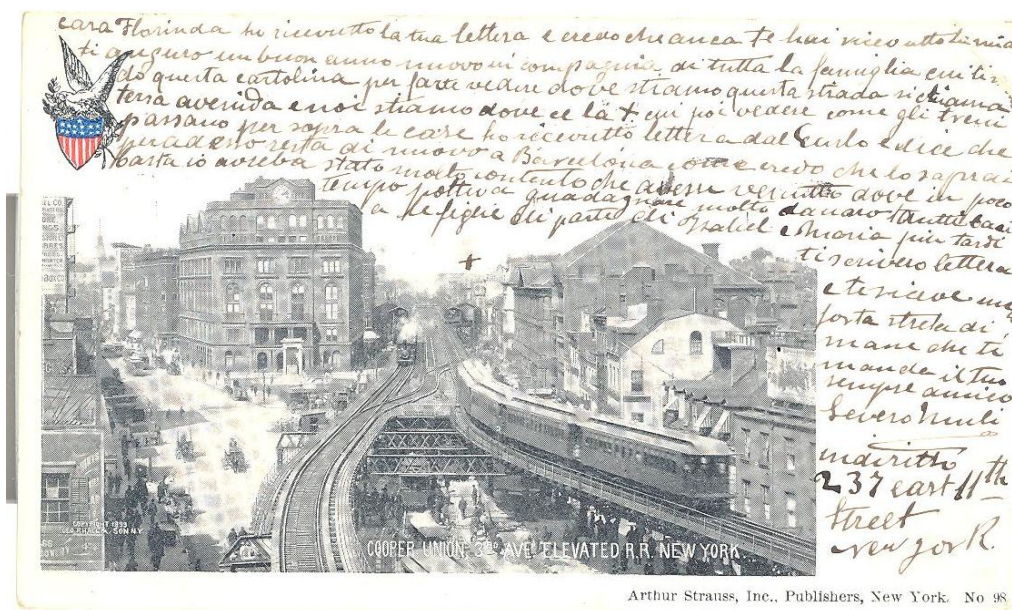 cara Florinda ho ricevutto la tua lettera e credo che anca te hai ricevutto la mia
ti auguro un buon anno nuovo in compagnia di tutta la famiglia
do questa cartolina per farte vedere dove stiamo questa strada si chiama
terza avenida e noi stiamo dove ce la + qui poi vedere come gli treni
passano per sopra le case ho ricevutto lettera dal Carlo e dice che
per adesso resta di nuovo a Barcelona e credo che lo saprai
basta io avreba stato molto contento che avesse venutto dove in poco
tempo potteva guadagnare molto danaro tanti baci
a le figlie di parte di Isabel e Maria piu tardi
ti scrivero lettera
e te riceve una
forta streta di
mane che ti
manda il tuo
sempre amico
Severo
indiritto
237 east 11th
Street
new yorK.
+
COPYRIGHT 1899
GEO. P. HALL & SON N.Y.
COOPER UNION, 3RD AVE. ELEVATED R.R. NEW YORK.
Arthur Strauss, Inc., Publishers, New York. No 98